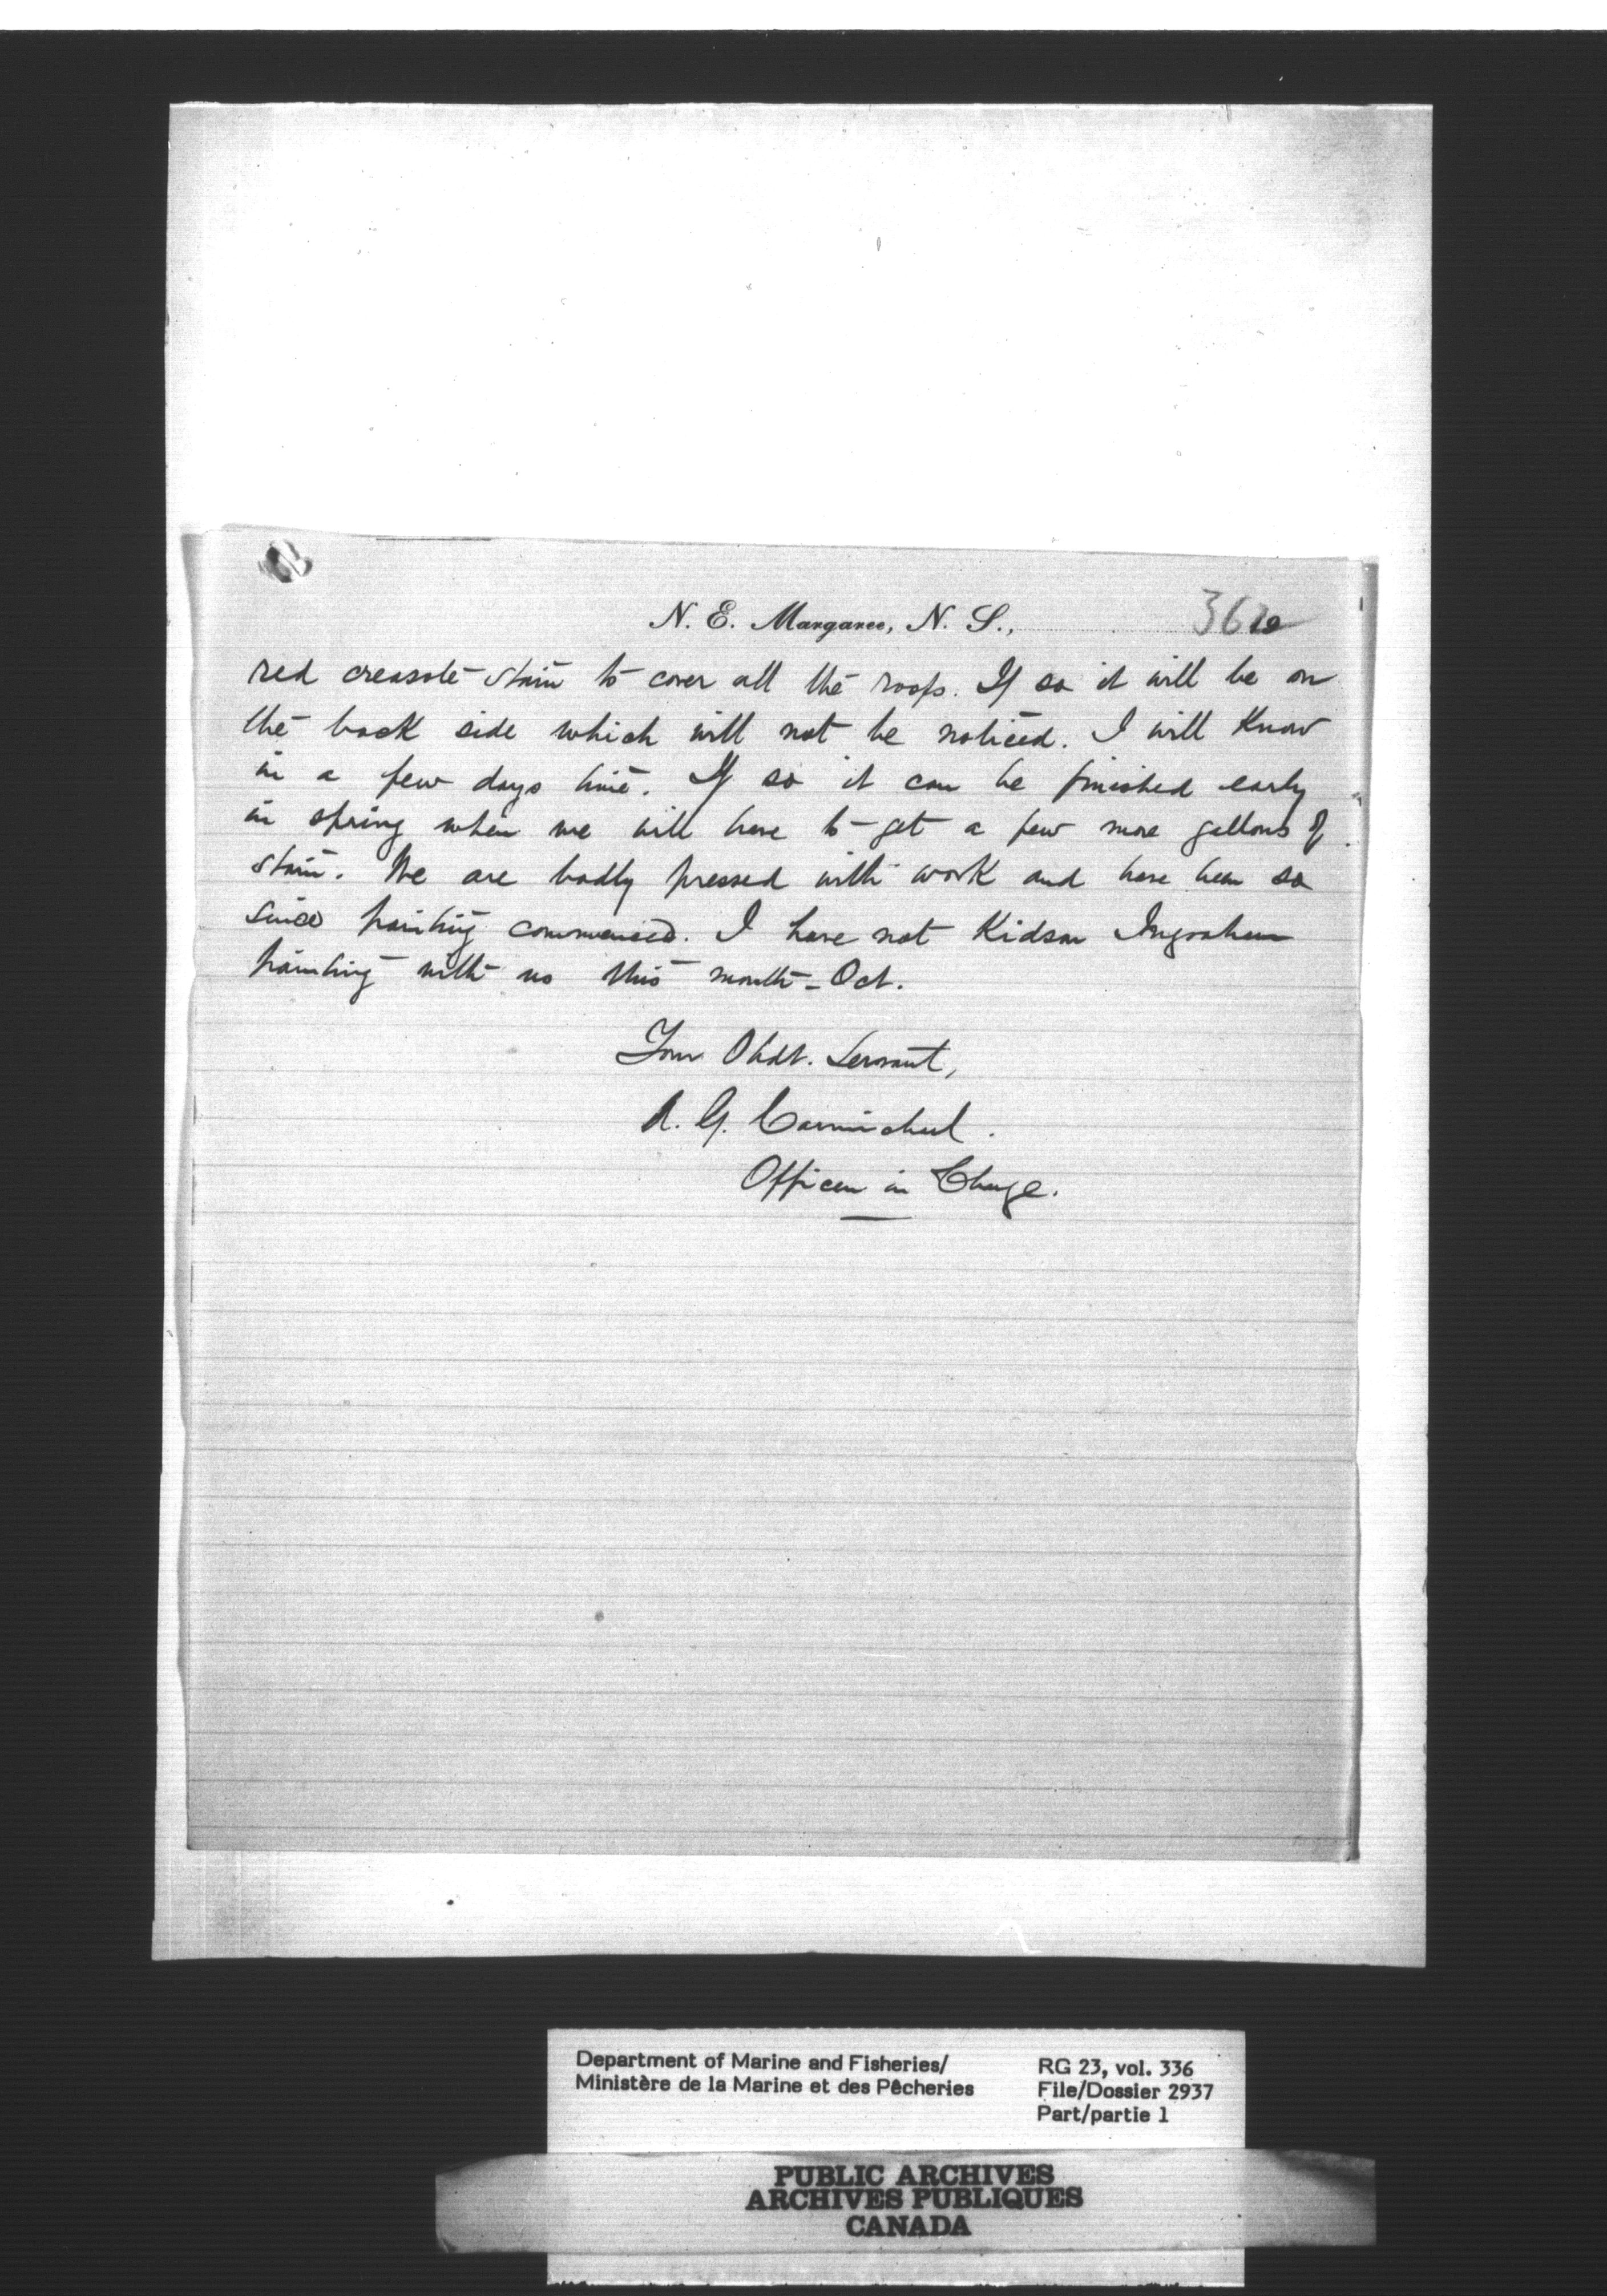 N. E. Margaree, N. S.,
red creasote stain to cover all the roofs. If so it will be on
the back side which will not be noticed. I will know
in a few days time. If so it can be finished early
in spring when we will have to get a few more gallons of
stain. We are badly pressed with work and have been so
since painting commenced. I have not Kidson Ingraham
painting with us this month - Oct.
Your Obdt. Servant,
A. G. Carmichael.
Officer in Charge.
Department of Marine and Fisheries/
Ministère de la Marine et des Pêcheries
RG 23, vol. 336
File/Dossier 2937
Part/partie 1
PUBLIC ARCHIVES
ARCHIVES PUBLIQUES
CANADA